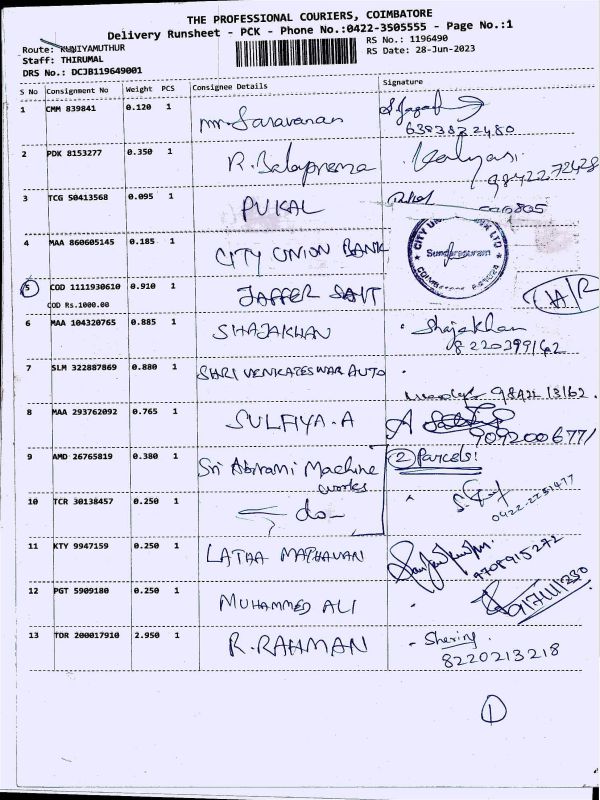 THE PROFESSIONAL COURIERS, COIMBATORE
Delivery Runsheet - PCK - Phone No.:0422-3505555 - Page No.:1
Route: KUNIYAMUTHUR
RS No.: 1196490
Staff: THIRUMAL
RS Date: 28-Jun-2023
DRS No.: DCJB119649001
S No Consignment No Weight PCS Consignee Details Signature
1 CMM 839841 0.120 1 mr. Saravanan
6383832480
2 PDK 8153277 0.350 1 R. Balaprema
9842272428
3 TCG 50413568 0.095 1 PUKAL
4 MAA 860605145 0.185 1 CITY UNION BANK
Sundarapuram
5 COD 1111930610 0.910 1 JAFFER SAIT
COD Rs.1000.00
6 MAA 104320765 0.885 1 SHAJAKHAN Shajakhan
8220399162
7 SLM 322887869 0.880 1 SHRI VENKATESWAR AUTO
8 MAA 293762092 0.765 1 SULFIYA.A
9092006771
9 AMD 26765819 0.380 1 Sri Abirami Machine works 2 Parcels!
10 TCR 30138457 0.250 1 do
0422-2251477
11 KTY 9947159 0.250 1 LATHA MATHAVAN
9708915272
12 PGT 5909180 0.250 1 MUHAMMED ALI
13 TDR 200017910 2.950 1 R.RAHMAN - Sherin
8220213218
1